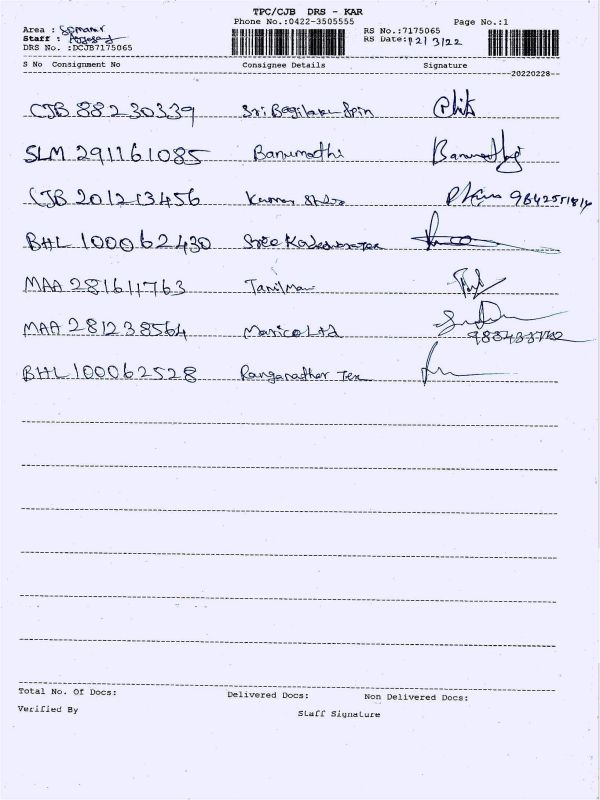 TPC/CJB DRS - KAR
Phone No.:0422-3505555
Page No.:1
Area :
Staff :
DRS No. :DCJB7175065
RS No.:7175065
RS Date: 12/3/22
S No Consignment No Consignee Details Signature
20220228
CJB 88230339 Sri Bagilaxu Spin
SLM 291161085 Banumathi Banumathi
CJB 201213456 Kumar 9842551814
BHL 100062430 Sree Kaleswara Tex
MAA 281611763 Tamilmani
MAA 281238564 Marico Ltd
BHL 100062528 Ranganathar Tex
Total No. Of Docs: Delivered Docs: Non Delivered Docs:
Verified By Staff Signature